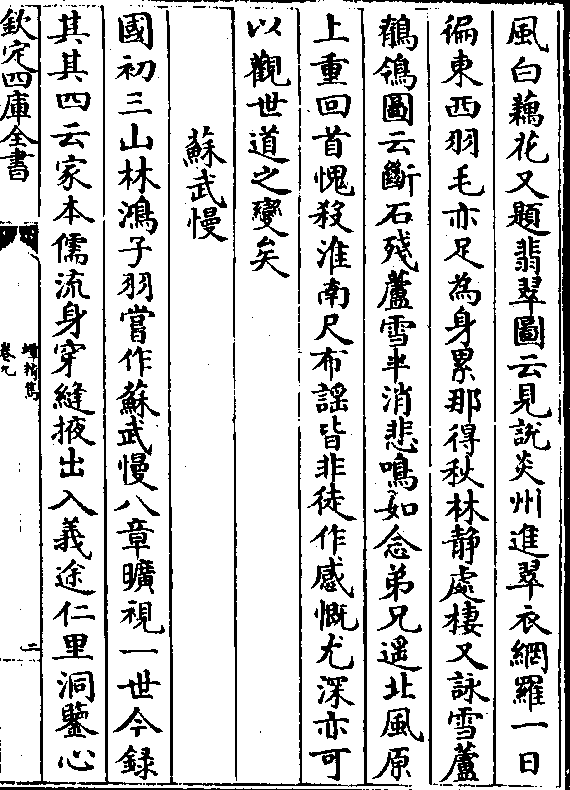 風白藕花又題翡翠圖云見說炎州進翠衣網羅一日
徧東西羽毛亦足為身累那得秋林静處棲又詠雪蘆
鶺鴒圖云斷石殘蘆雪半消悲鳴如念弟兄遥北風原
上重回首愧殺淮南尺布謡皆非徒作感慨尤深亦可
以觀世道之變矣
蘇武慢
國初三山林鴻子羽嘗作蘇武慢八章曠視一世今録
其其四云家本儒流身穿縫掖出入義途仁里洞鑒心
欽定四庫全書
蟫精雋
卷九
二